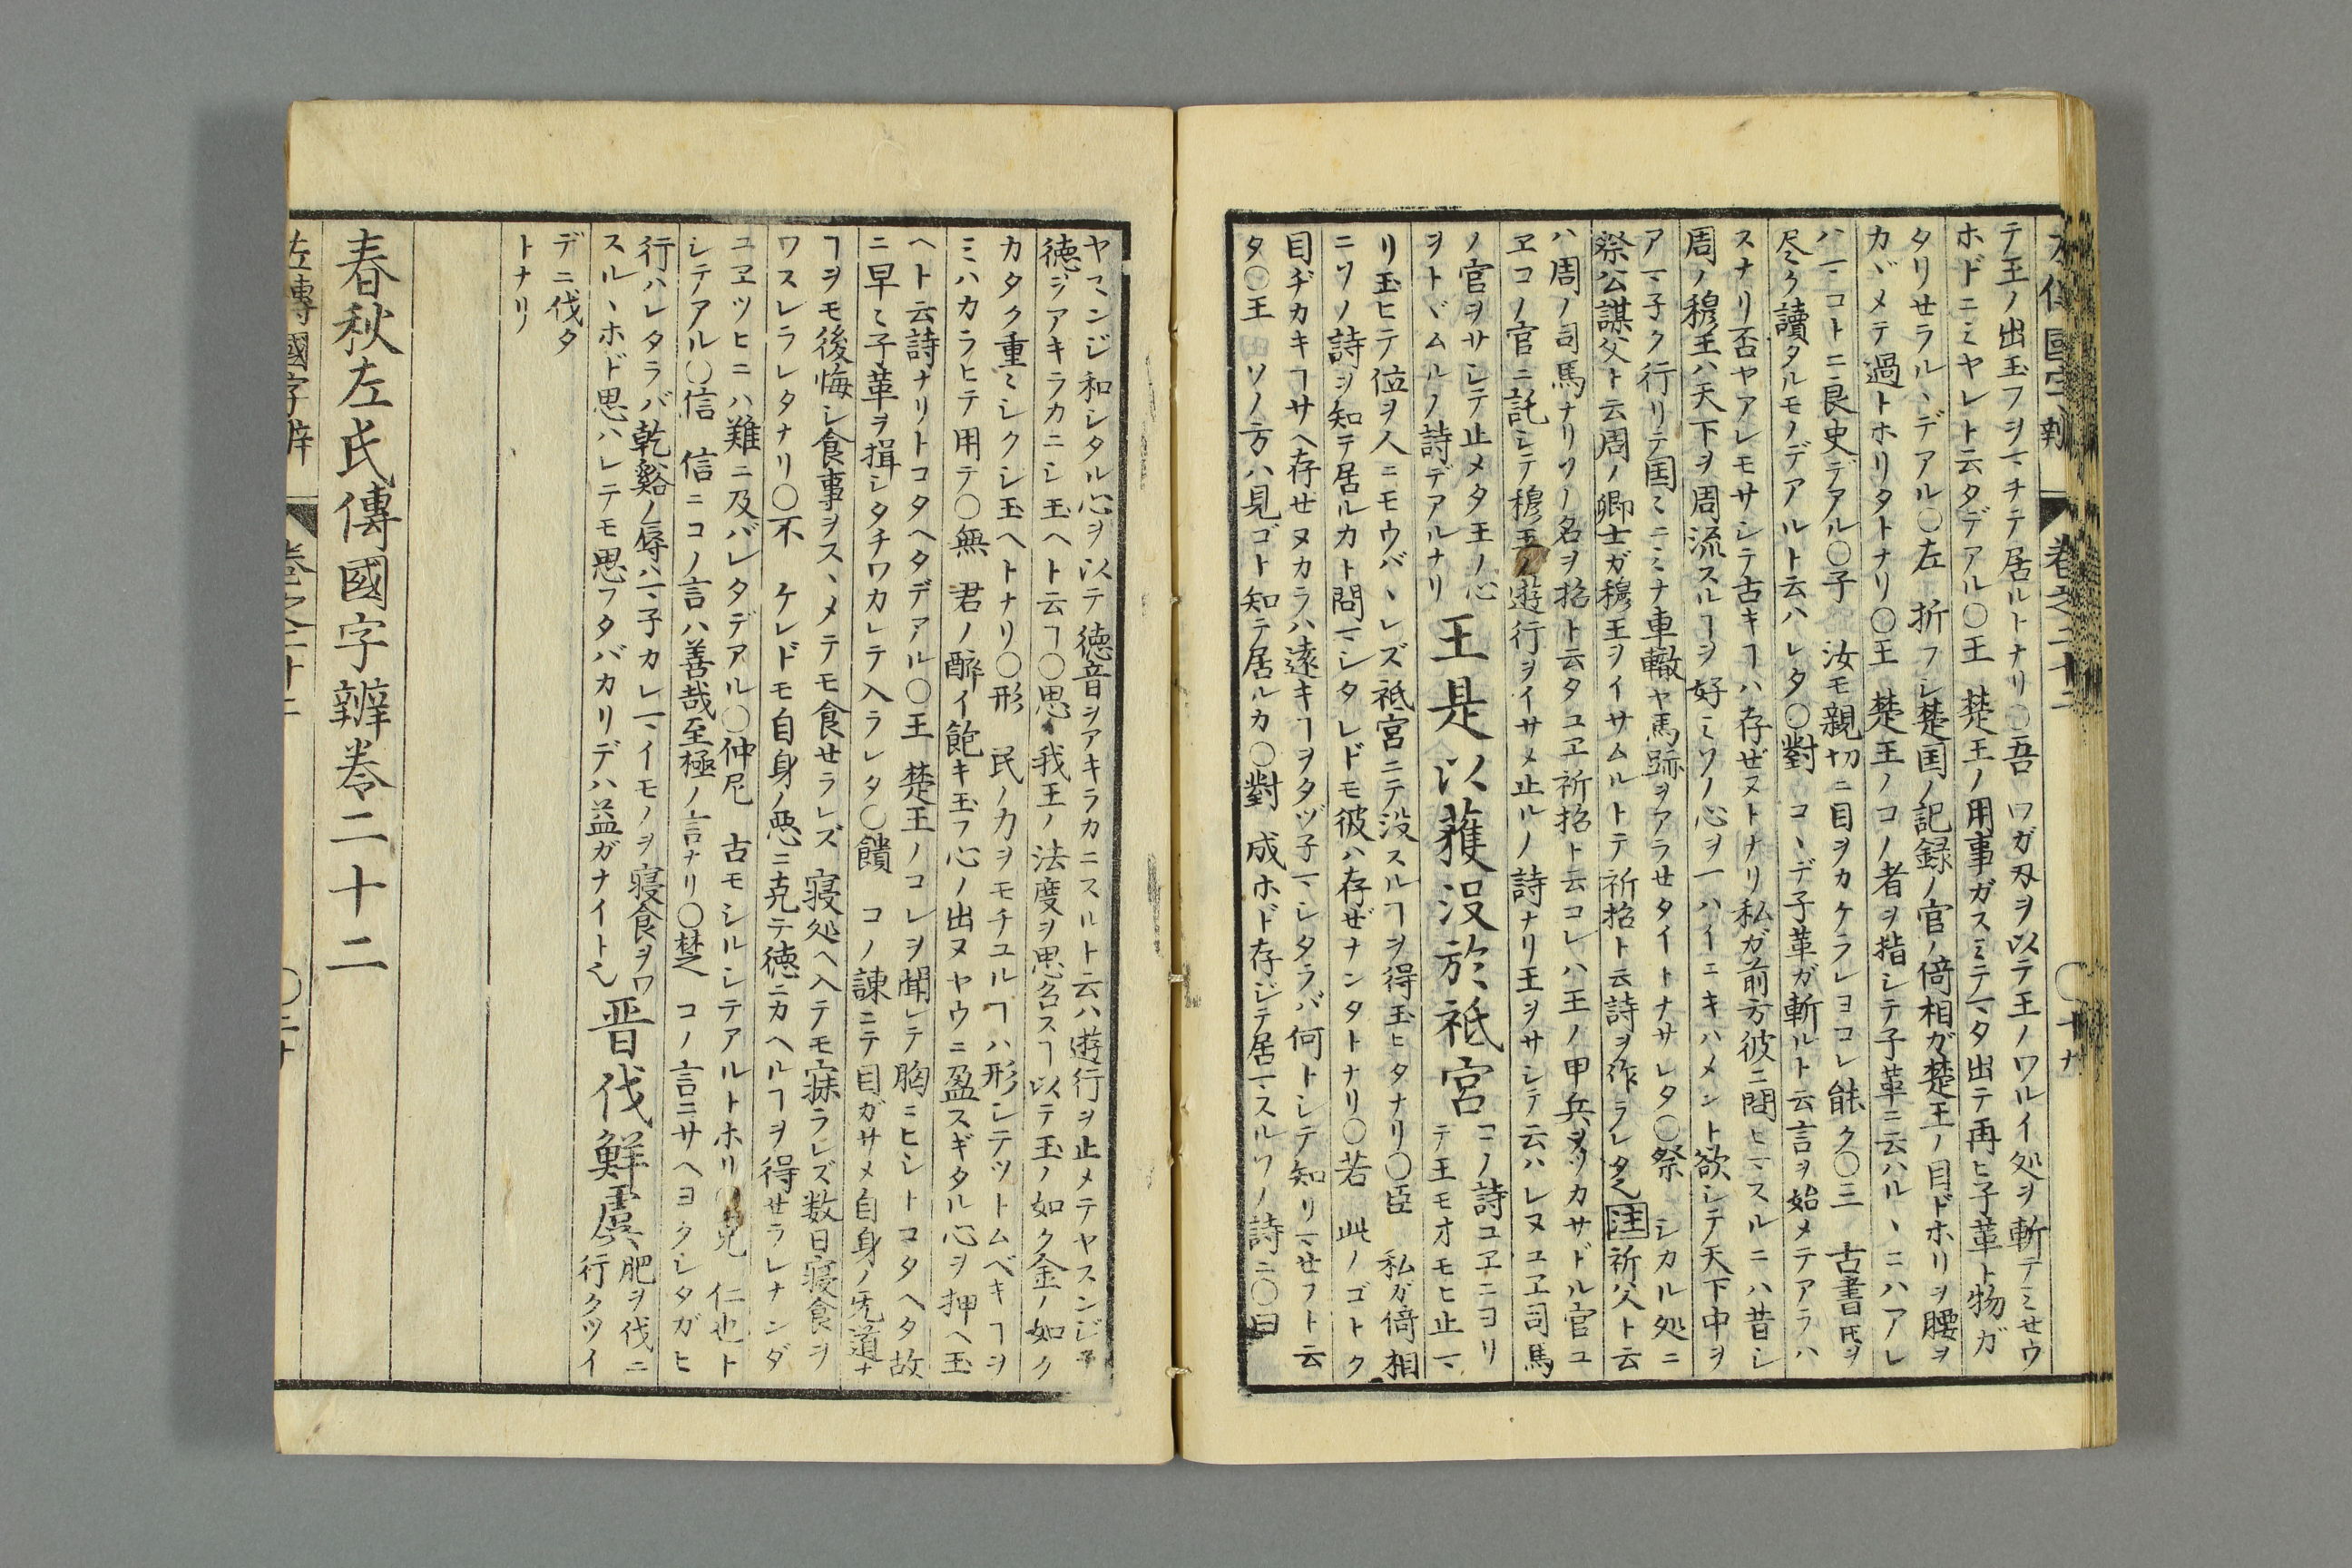 テ王ノ出玉フヲマチテ居ルトナリ○吾 ワガ刄ヲ以テ王ノワルイ処ヲ斬テミセウ
ホドニミヤレト云タデアル○王 楚王ノ用事ガスミテマタ出テ再ヒ子革ト物ガ
タリセラルヽデアル○左 折フシ楚国ノ記録ノ官ノ倚相ガ楚王ノ目ドホリヲ腰ヲ
カヾメテ過トホリタトナリ○王 楚王ノコノ者ヲ指シテ子革ニ云ハルヽニハアレ
ハマコトニ良史デアル○子 汝モ親切ニ目ヲカケラレヨコレ能ク○三 古書氏ヲ
尽ク讀タルモノデアルト云ハレタ○對 コヽデ子革ガ斬ルト云言ヲ始メテアラハ
スナリ否ヤアレモサシテ古キヿハ存ゼヌトナリ私ガ前方彼ニ問ヒマスルニハ昔シ
周ノ穆王ハ天下ヲ周流スルヿヲ好ミソノ心ヲ一ハイニキハメント欲シテ天下中ヲ
アマ子ク行リテ国ミニミナ車轍ヤ馬跡ヲアラセタイトナサレタ○祭 シカル処ニ
祭公謀父ト云周ノ卿士ガ穆王ヲイサムルトテ祈招ト云詩ヲ作ラレタ𪜈 注 祈父ト云
ハ周ノ司馬ナリソノ名ヲ招ト云タユヱ祈招ト云コレハ王ノ甲兵ヲツカサドル官ユ
ヱコノ官ニ託シテ穆王ノ遊行ヲイサメ止ルノ詩ナリ王ヲサシテ云ハレヌユヱ司馬
ノ官ヲサシテ止メタ王ノ心
ヲトヾムルノ詩デアルナリ
王是以獲没於祗宮
コノ詩ユヱニヨリ
テ王モオモヒ止マ
リ玉ヒテ位ヲ人ニモウバヽレズ祗宮ニテ没スルヿヲ得玉ヒタナリ○臣 私ガ倚相
ニソノ詩ヲ知テ居ルカト問マシタレドモ彼ハ存ゼナンタトナリ○若 此ノゴトク
目ヂカキヿサヘ存セヌカラハ遠キヿヲタヅ子マシタラバ何トシテ知リマセフト云
タ○王 ソノ方ハ見ゴト知テ居ルカ○對 成ホド存ジテ居マスルソノ詩ニ○曰
ヤマンジ和シタル心ヲ以テ徳音ヲアキラカニスルト云ハ遊行ヲ止メテヤスンジ
徳ヲアキラカニシ玉ヘト云ヿ○思 我王ノ法度ヲ思召スヿ以テ玉ノ如ク金ノ如ク
カタク重ミシクシ玉ヘトナリ○形 民ノ力ヲモチユルヿハ形シテツトムベキヿヲ
ミハカラヒテ用テ○無 君ノ醉イ飽キ玉フ心ノ出ヌヤウニ盈スギタル心ヲ押ヘ玉
ヘト云詩ナリトコタヘタデアル○王 楚王ノコレヲ聞レテ胸ニヒシトコタヘタ故
ニ早ミ子革ヲ揖シタチワカレテ入ラレタ○饋 コノ諌ニテ目ガサメ自身ノ无道ナ
ヿヲモ後悔シ食事ヲスヽメテモ食セラレズ寝処ヘ入テモ寐ラレズ数日寝食ヲ
ワスレラレタナリ○不 ケレドモ自身ノ悪ニ克テ徳ニカヘルヿヲ得セラレナンダ
ユヱツヒニハ難ニ及バレタデアル○仲尼 古モシルシテアルトホリ 克 仁也ト
シテアル○信 信ニコノ言ハ善哉至極ノ言ナリ○楚 コノ言ニサヘヨクシタガヒ
行ハレタラバ乾谿ノ辱ハマ子カレマイモノヲ寝食ヲワ
スルヽホド思ハレテモ思フタバカリデハ益ガナイト
晋伐鮮虞
肥ヲ伐ニ
行クツイ
デニ伐タ
トナリ
春秋左氏傳國字辨巻二十二